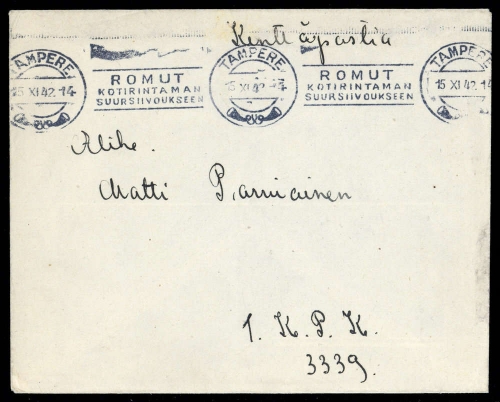 Kenttäpostia
TAMPERE
15 XI 42 -14
ROMUT
KOTIRINTAMAN
SUURSIIVOUKSEEN
TAMPERE
15 XI 42 -14
ROMUT
KOTIRINTAMAN
SUURSIIVOUKSEEN
TAMPERE
15 XI 42 -14
Alik.
Matti
1. K. P. K.
3339.